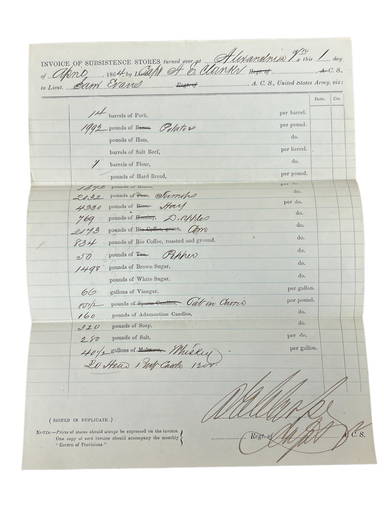 INVOICE OF SUBSISTENCE STORES turned over at Alexandria this 1 day
of April 1864 by Capt A. C. S.,
to Lieut. Sam Evans Regt of A. C. S., United States Army, viz:
Dols. Cts.
14 barrels of Pork, per barrel.
1992 pounds of Potatoes per pound.
pounds of Ham, do.
barrels of Salt Beef, per barrel.
9 barrels of Flour, do.
pounds of Hard Bread, per pound.
2132 pounds of Turnips do.
4320 pounds of Hay do.
769 pounds of Hominy, D. apples do.
2173 pounds of Rio Coffee, green, Corn do.
834 pounds of Rio Coffee, roasted and ground. do.
50 pounds of Tea, Pepper do.
1498 pounds of Brown Sugar, do.
pounds of White Sugar, do.
66 gallons of Vinegar, per gallon.
pounds of per pound.
160 pounds of Adamantine Candles, do.
320 pounds of Soap, do.
280 pounds of Salt, do.
40½ gallons of Whiskey per gallon.
20 Head Beef Cattle
(SIGNED IN DUPLICATE.)
NOTE.—Prices of stores should always be expressed on the invoice.
One copy at said invoice should accompany the monthly
"Return of Provisions."
Regt. of Capt C. S.